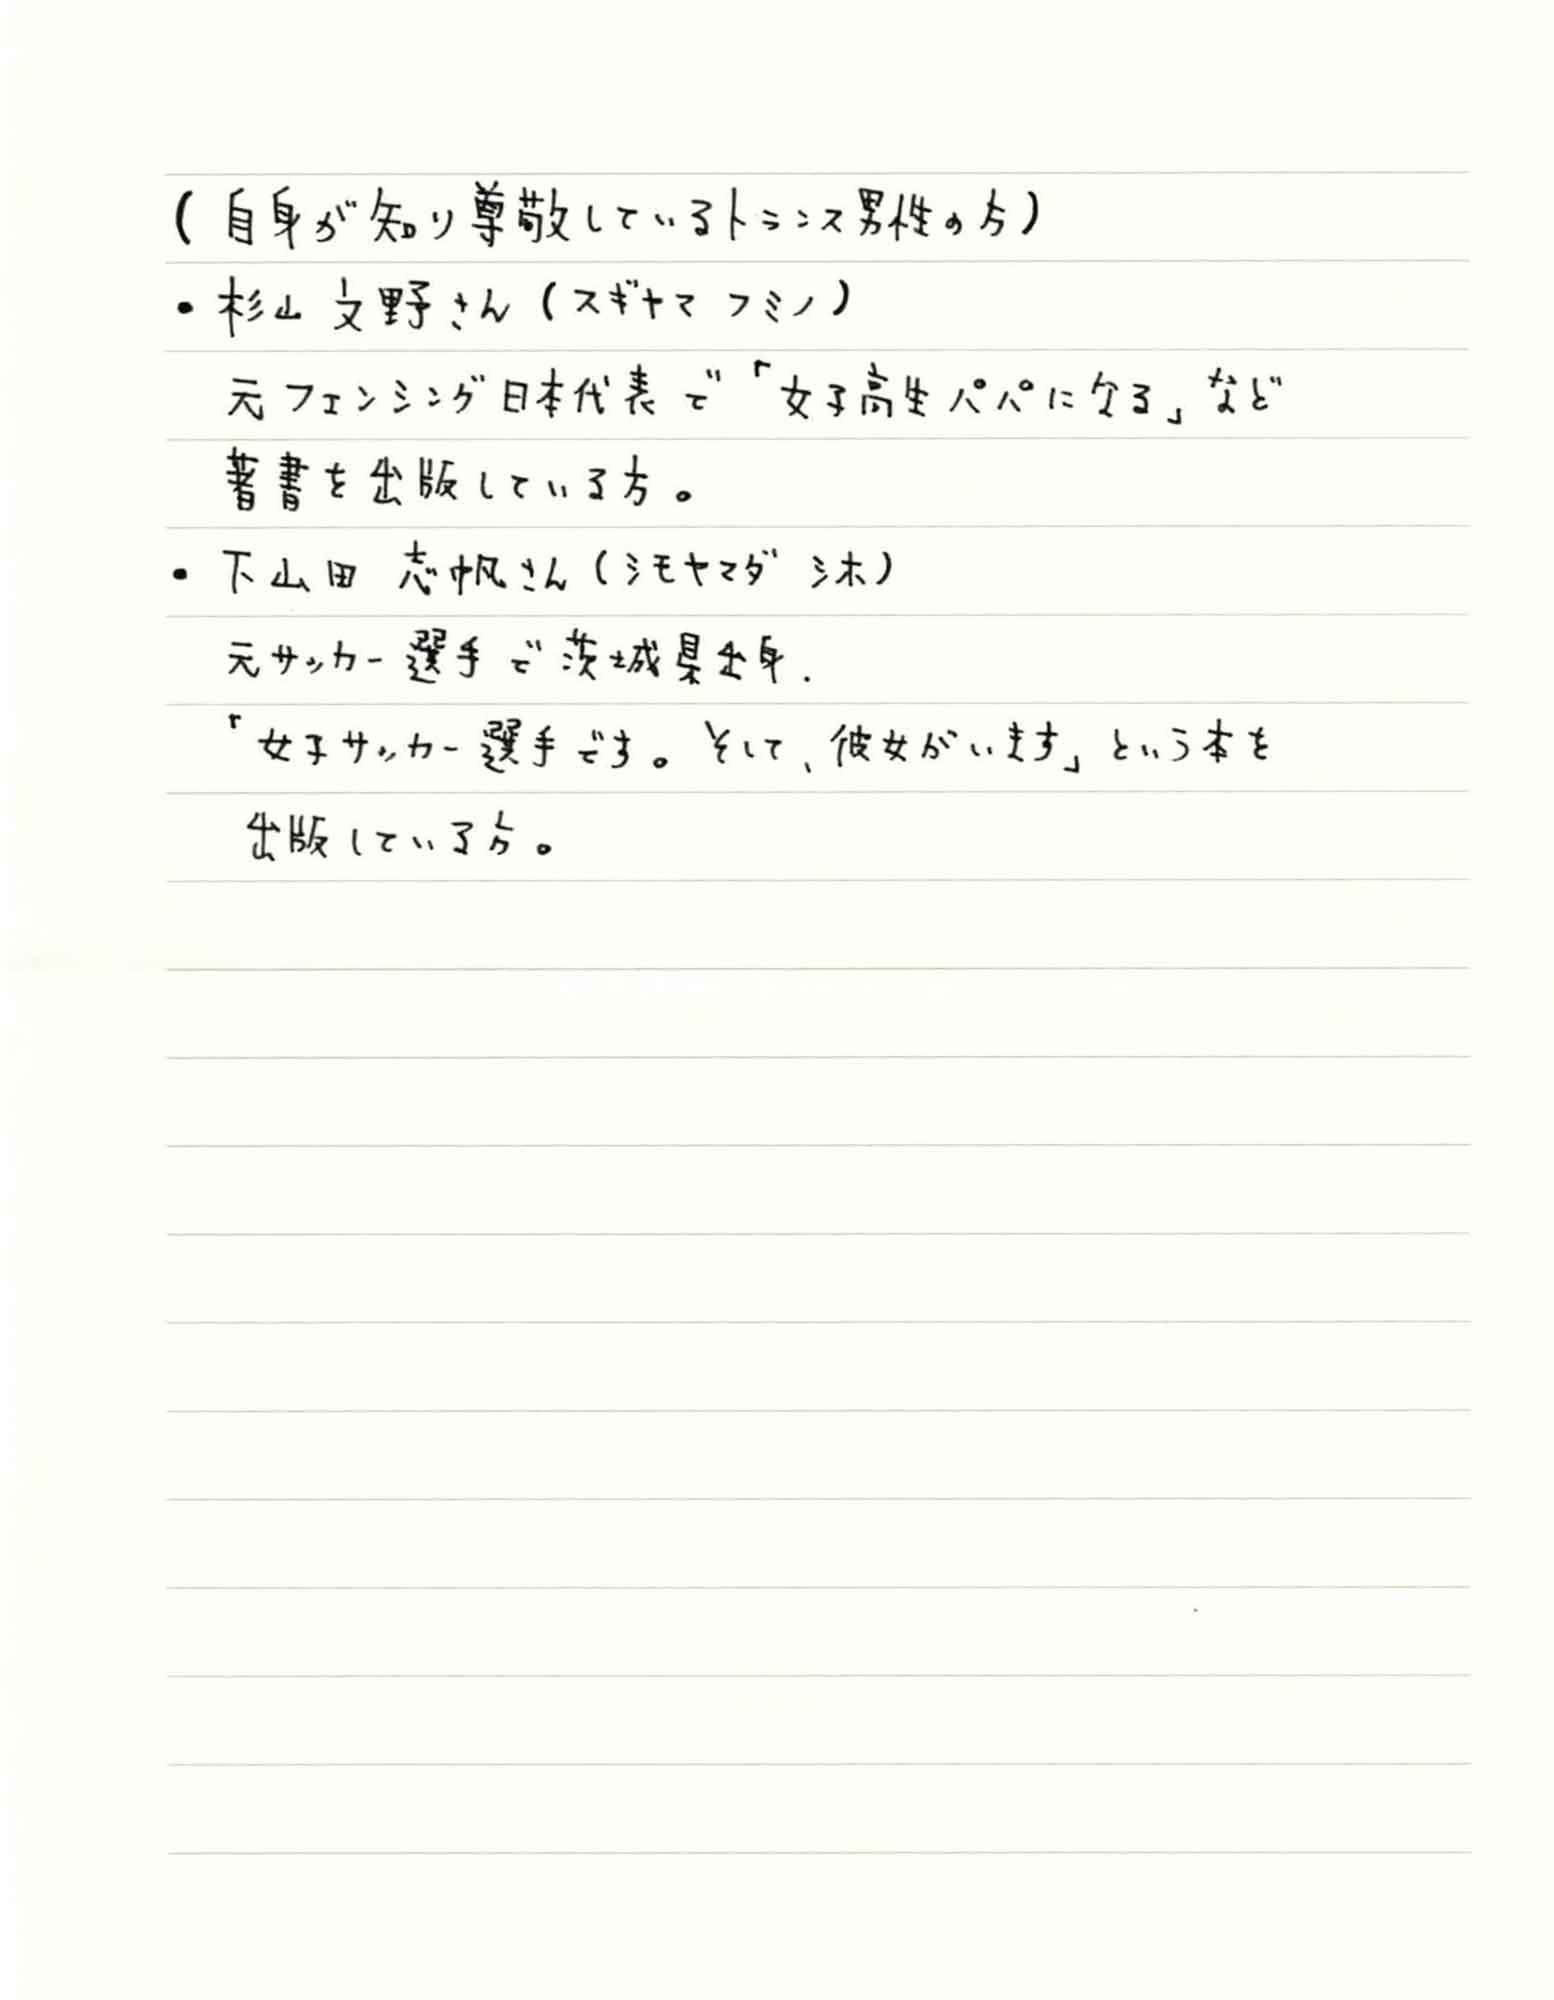 (自身が知り尊敬しているトランス男性の方)
・杉山 文野さん(スギヤマ フミノ)
元フェンシング日本代表で「女子高生パパになる」など
著書を出版している方。
・下山田 志帆さん(シモヤマダ シホ)
元サッカー選手で茨城県出身.
「女子サッカー選手です。そして、彼女がいます」という本を
出版している方。